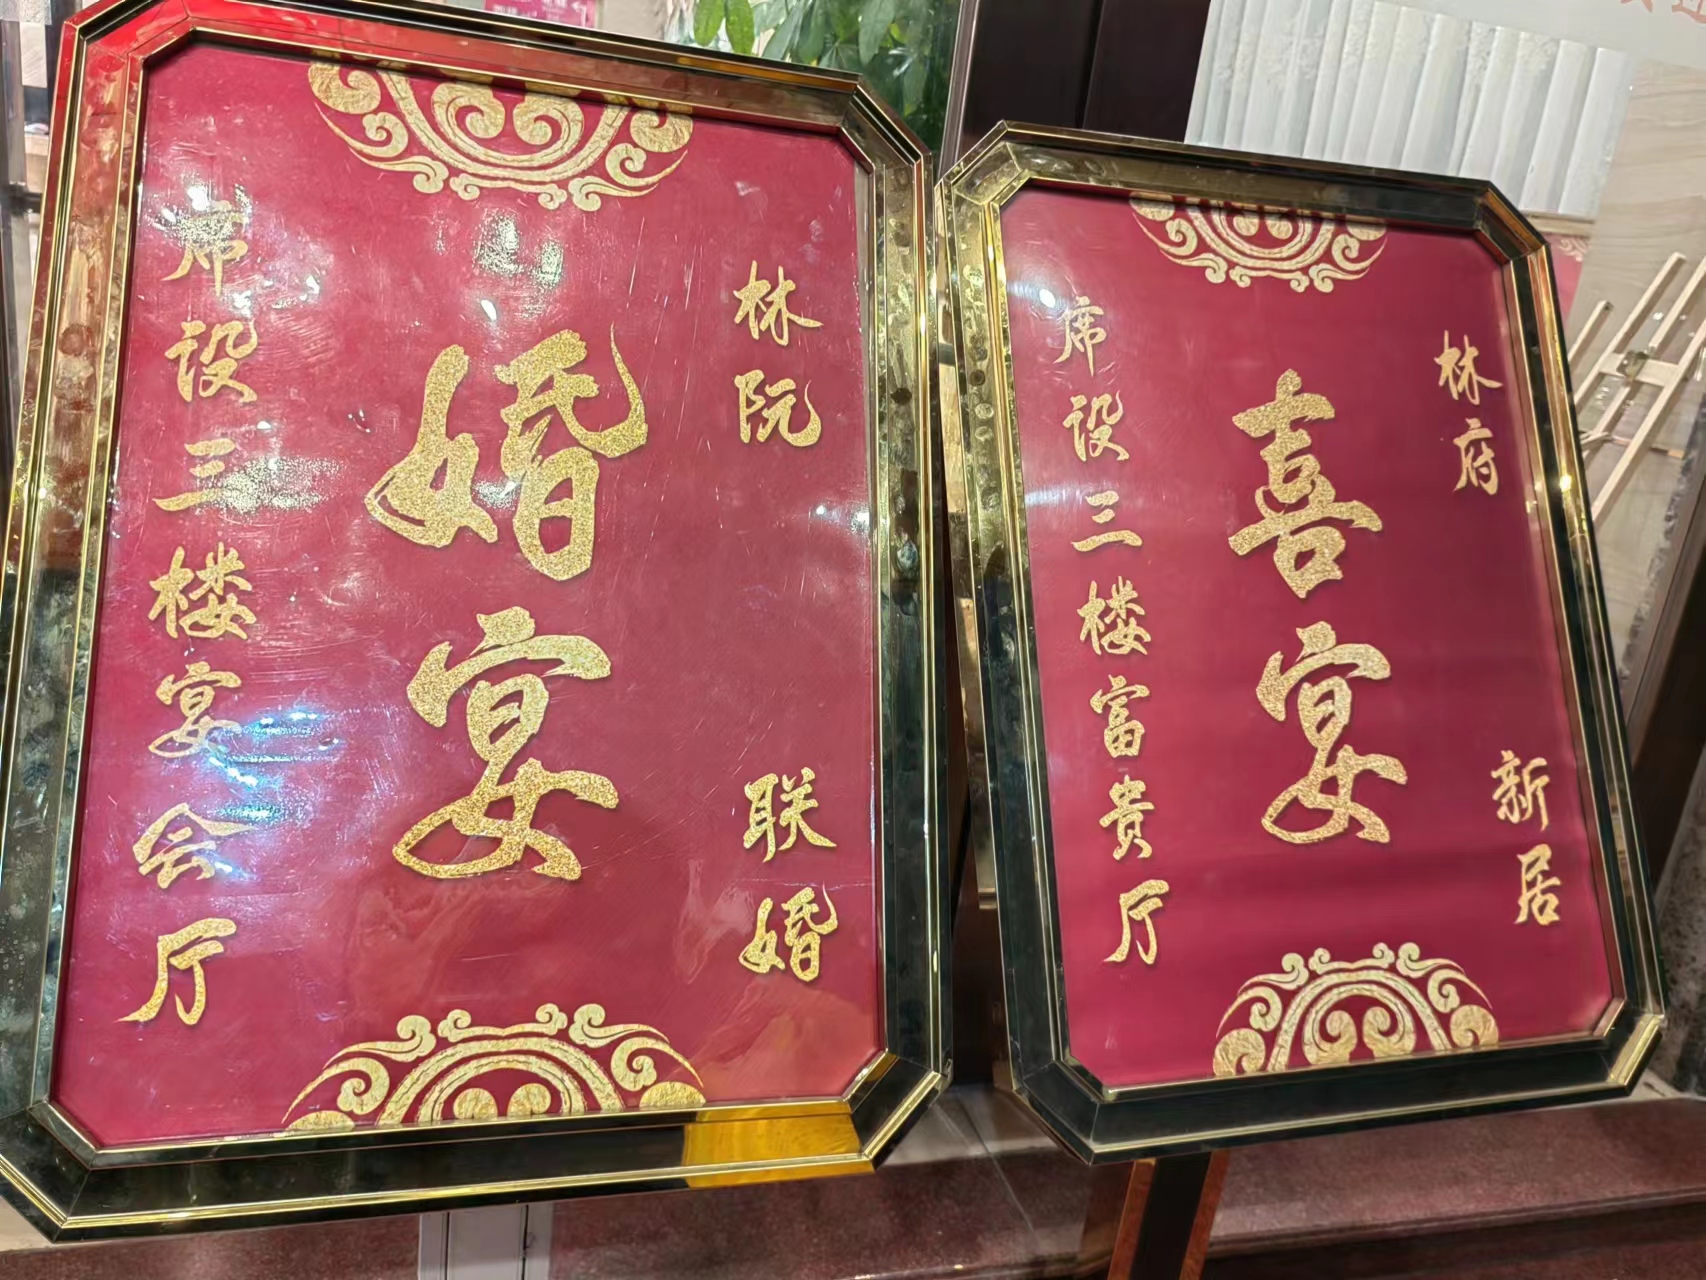 林阮 联婚
婚宴
席设三楼宴会厅
林府 新居
喜宴
席设三楼富贵厅